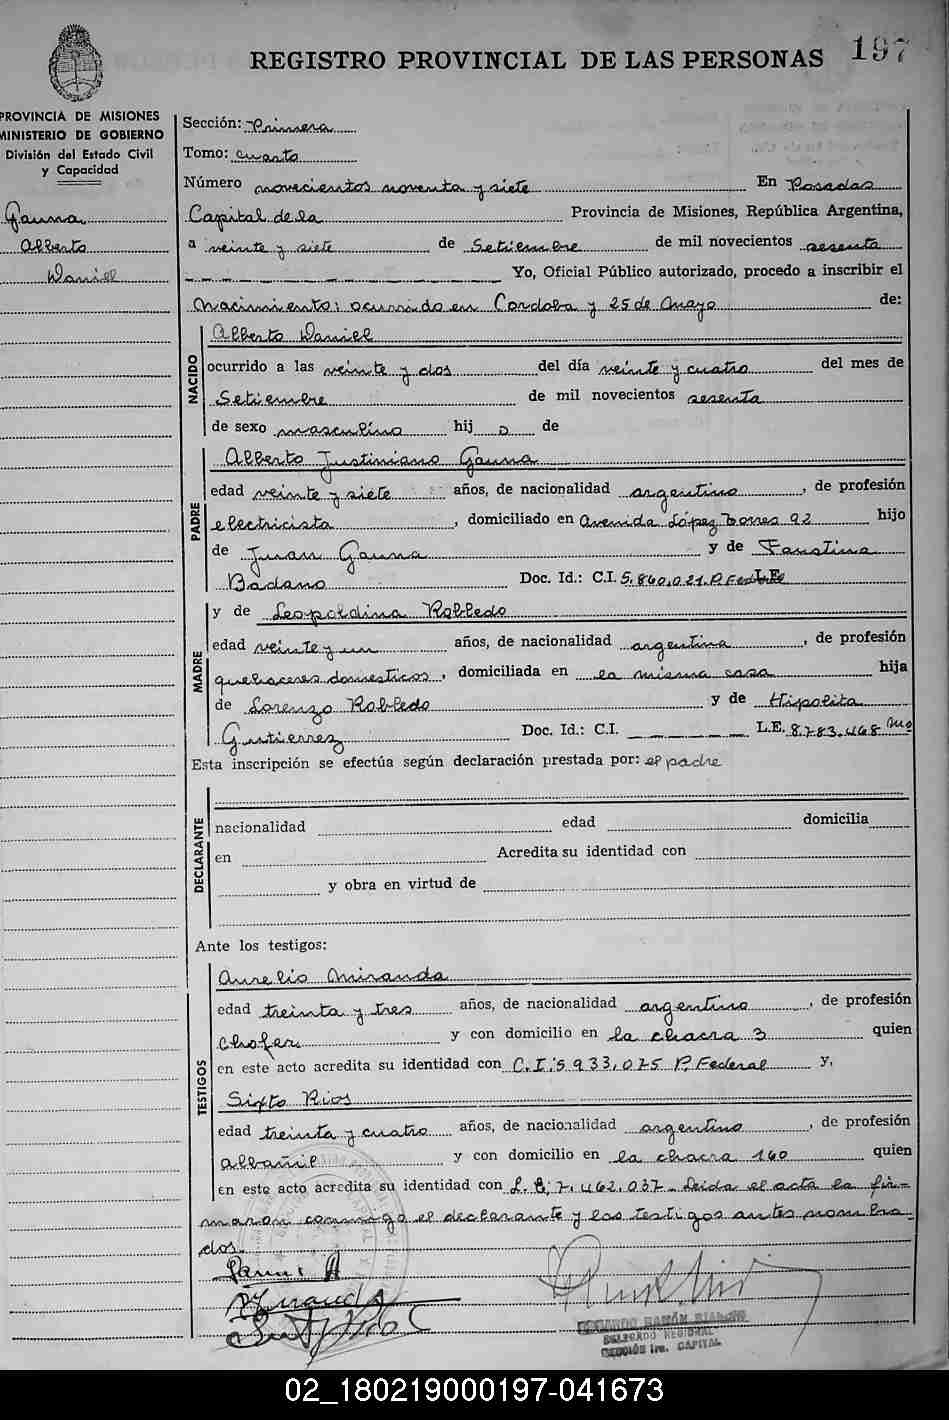 REGISTRO PROVINCIAL DE LAS PERSONAS 197
PROVINCIA DE MISIONES
MINISTERIO DE GOBIERNO
División del Estado Civil
y Capacidad
Gauna
Alberto
Daniel
Sección: Primera
Tomo: cuarto
Número novecientos noventa y siete En Posadas
Capital de la Provincia de Misiones, República Argentina,
a veinte y siete de Setiembre de mil novecientos sesenta
Yo, Oficial Público autorizado, procedo a inscribir el
Nacimiento: ocurrido en Cordoba y 25 de Mayo de:
NACIDO
Alberto Daniel
ocurrido a las veinte y dos del día veinte y cuatro del mes de
Setiembre de mil novecientos sesenta
de sexo masculino hij o de
PADRE
Alberto Justiniano Gauna
edad veinte y siete años, de nacionalidad argentino, de profesión
electricista, domiciliado en Avenida López Torres 92 hijo
de Juan Gauna y de Faustina
Badano Doc. Id.: C.I. 5.860.021. P. Federal L.E.
MADRE
y de Leopoldina Robledo
edad veinte y un años, de nacionalidad argentina, de profesión
quehaceres domesticos, domiciliada en la misma casa hija
de Lorenzo Robledo y de Hipolita
Gutierrez Doc. Id.: C.I. L.E. 8.783.468 Mo
Esta inscripción se efectúa según declaración prestada por: el padre
DECLARANTE
nacionalidad edad domicilia
en Acredita su identidad con
y obra en virtud de
Ante los testigos:
TESTIGOS
Aurelio Miranda
edad treinta y tres años, de nacionalidad argentino, de profesión
chofer y con domicilio en la chacra 3 quien
en este acto acredita su identidad con C.I. 5933.075 P. Federal y,
Sixto Rios
edad treinta y cuatro años, de nacionalidad argentino, de profesión
albañil y con domicilio en la chacra 160 quien
en este acto acredita su identidad con L.E. 7.462.037_Leida el acta la fir-
maron conmigo el declarante y los testigos antes nombra-
dos.
DELEGADO REGIONAL
SECCIÓN 1ra. CAPITAL
02_180219000197-041673